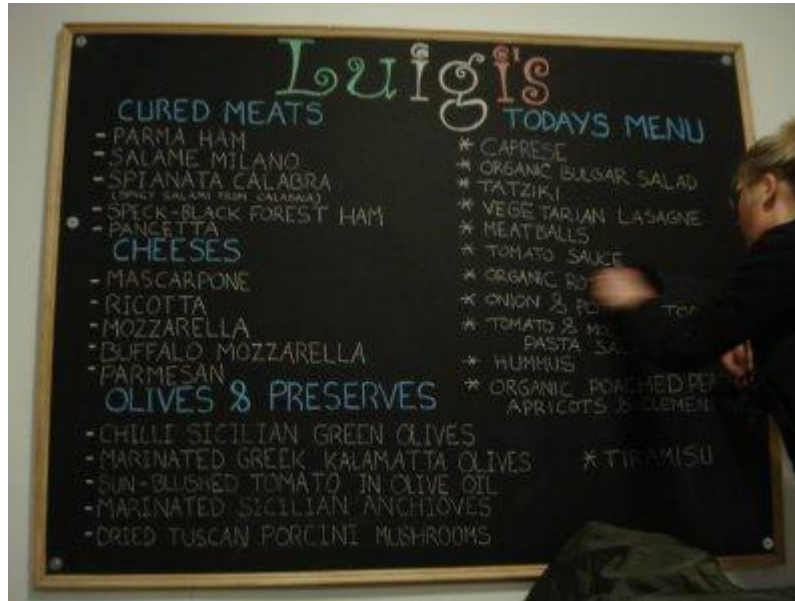 Luigi's
CURED MEATS
- PARMA HAM
- SALAME MILANO
- SPIANATA CALABRA
(SPICY SALAMI FROM CALABRIA)
- SPECK-BLACK FOREST HAM
- PANCETTA
CHEESES
- MASCARPONE
- RICOTTA
- MOZZARELLA
- BUFFALO MOZZARELLA
- PARMESAN
OLIVES & PRESERVES
- CHILLI SICILIAN GREEN OLIVES
- MARINATED GREEK KALAMATTA OLIVES
- SUN-BLUSHED TOMATO IN OLIVE OIL
- MARINATED SICILIAN ANCHIOVES
- DRIED TUSCAN PORCINI MUSHROOMS
TODAYS MENU
* CAPRESE
* ORGANIC BULGAR SALAD
* TATZIKI
* VEGETARIAN LASAGNE
* MEATBALLS
* TOMATO SAUCE
* ORGANIC
* ONION &
* TOMATO &
PASTA
* HUMMUS
* ORGANIC POACHED
APRICOTS &
* TIRAMISU